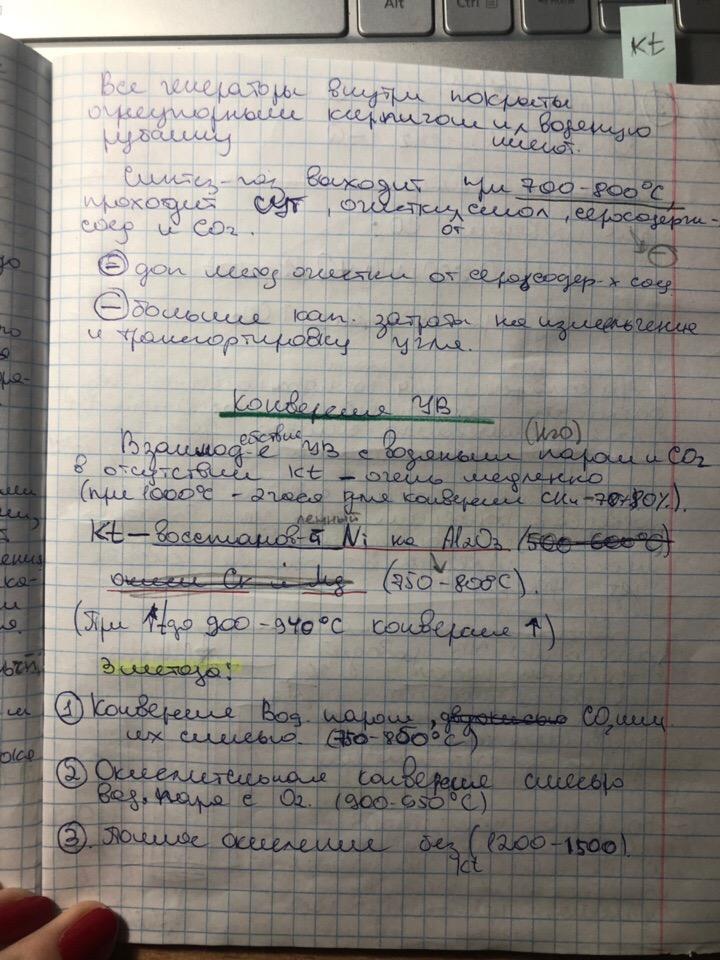 Alt
Ctrl
Kt
Все генераторы внутри покрыты
огнеупорным кирпичом или водяную
рубашку имеют.
Синтез-газ выходит при 700-800°C,
проходит , очистки от смол, серосодержи-
соед и CO2.
доп метод очистки от серосодер-х соед
⊖ большие кап. затраты на измельчение
и транспортировку угля.
Конверсия УВ
Взаимод-ействие УВ с водяным паром (H2O) и CO2
в отсутствии Kt – очень медленно
(при 1000°C – 2 часа для конверсии CH4 – 70-80%).
Kt – восстанов-ленный Ni на Al2O3 (500-600°C)
(750-800°C).
(При ↑t до 900-940°C конверсия ↑)
3 метода:
① Конверсия вод. паром, CO2 или
их смесью. (750-800°C)
② Окислительная конверсия смесью
вод. пара с O2. (900-950°C)
③. Полное окисление без Kt (1200-1500).